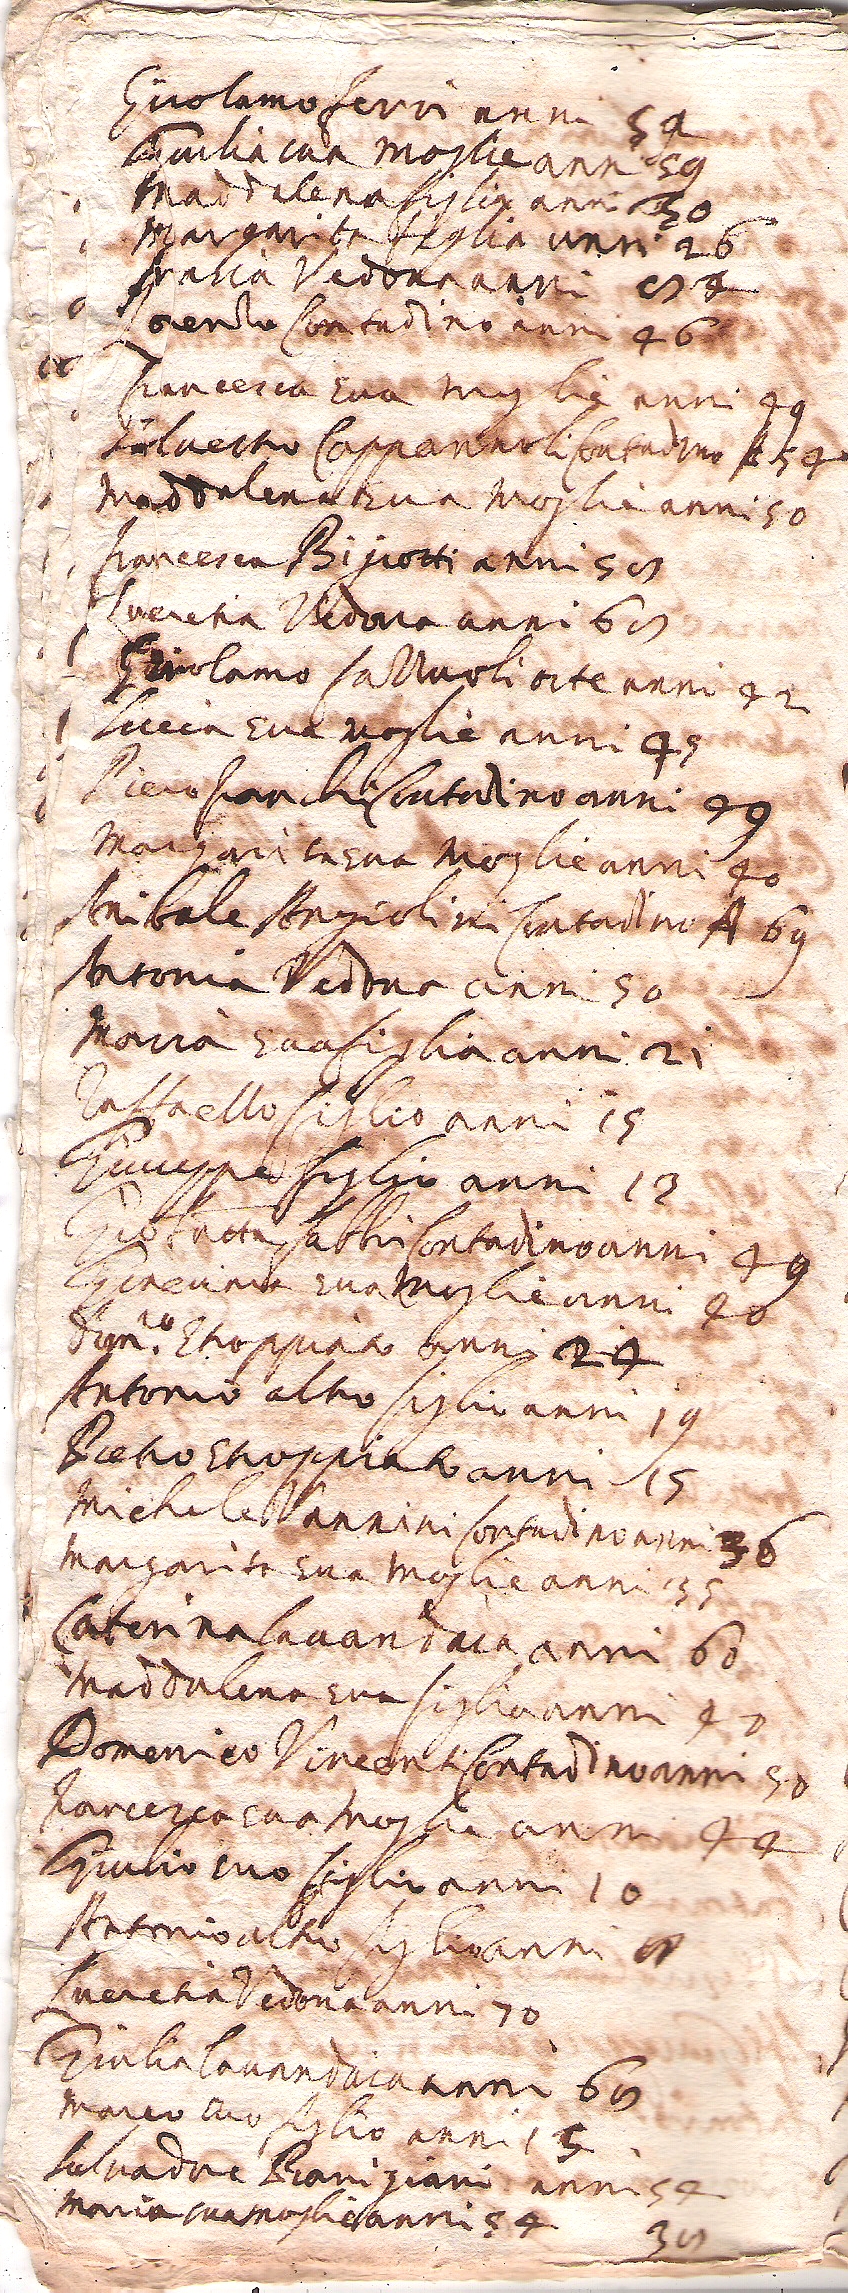 Girolamo ferri anni 54
Giulia sua moglie anni 59
Maddalena figlia anni 30
Margarita figlia anni 26
Vedova anni
Lorenzo Contadino anni 46
francesca sua moglie anni 49
Silvestro Cappannoli Contadino A 54
Maddalena sua moglie anni 50
francesca Bigiotti anni
Lucretia Vedova anni
Girolamo anni 42
Lucia sua moglie anni 45
Piero franchi Contadino anni 49
Margarita sua moglie anni 40
Anibale Angiolini Contadino A 69
Antonia Vedova anni 50
Maria sua figlia anni 21
Raffaello figlio anni 15
Giuseppe figlio anni 13
Gio batta fabbri Contadino anni 49
Ginevara sua moglie anni 40
Dom.co stroppiato anni 24
Antonio altro figlio anni 19
Pietro stroppiato anni 15
Michele Vannini Contadino anni 36
Margarita sua moglie anni 35
Caterina lavandaia anni 60
Maddalena sua figlia anni 40
Domenico Vincenti Contadino anni 50
francesca sua moglie anni 44
Giulio suo figlio anni 10
Antonio altro figlio anni
Lucretia Vedova anni 70
Giulia lavandaia anni
Marco suo figlio anni 15
Salvadore anni 54
Maria sua moglie anni 54